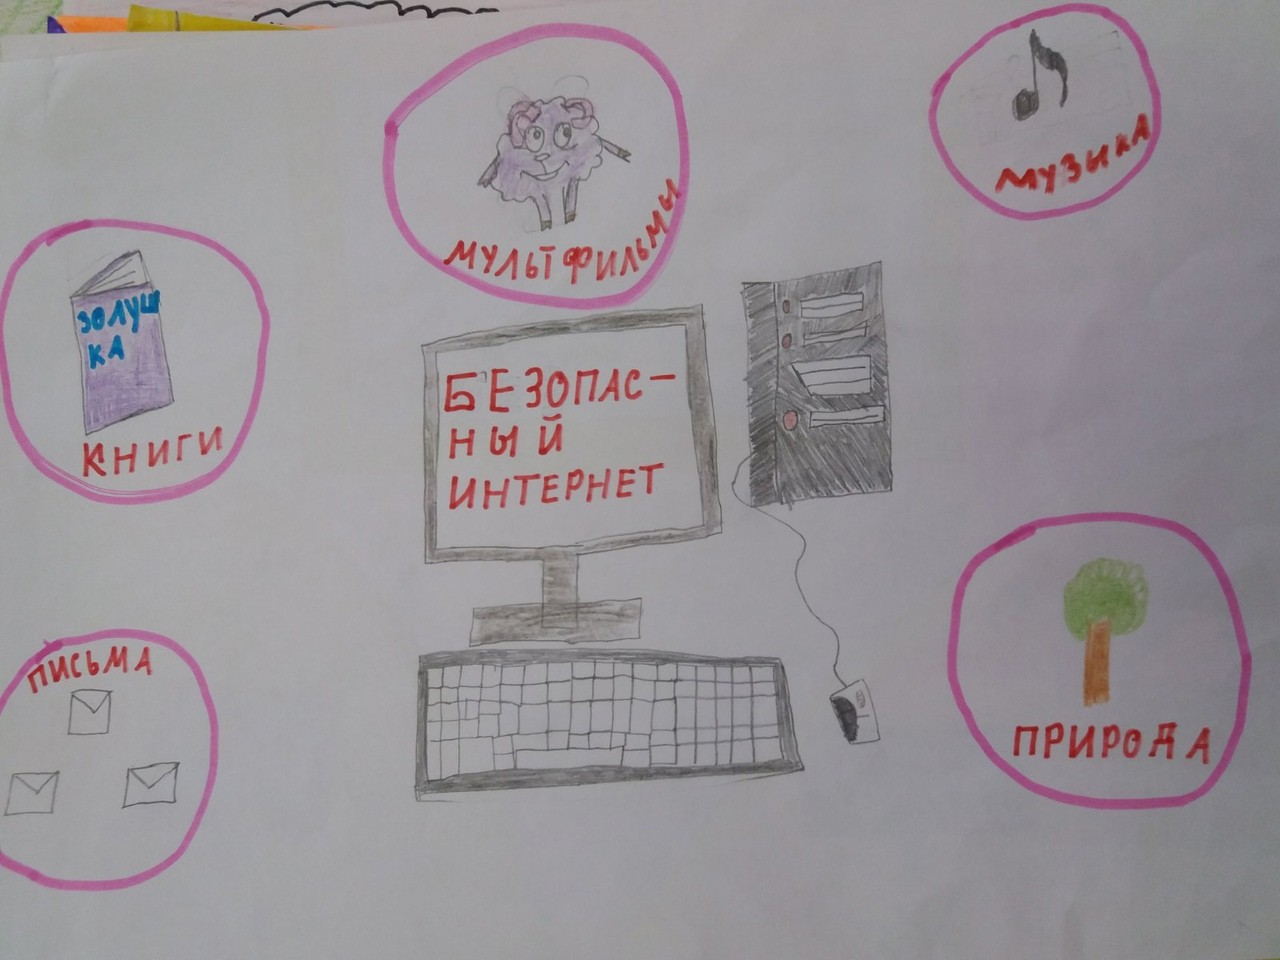 МУЛЬТФИЛЬМЫ
МУЗЫКА
ЗОЛУШ
КА
КНИГИ
БЕЗОПАС-
НЫЙ
ИНТЕРНЕТ
ПИСЬМА
ПРИРОДА